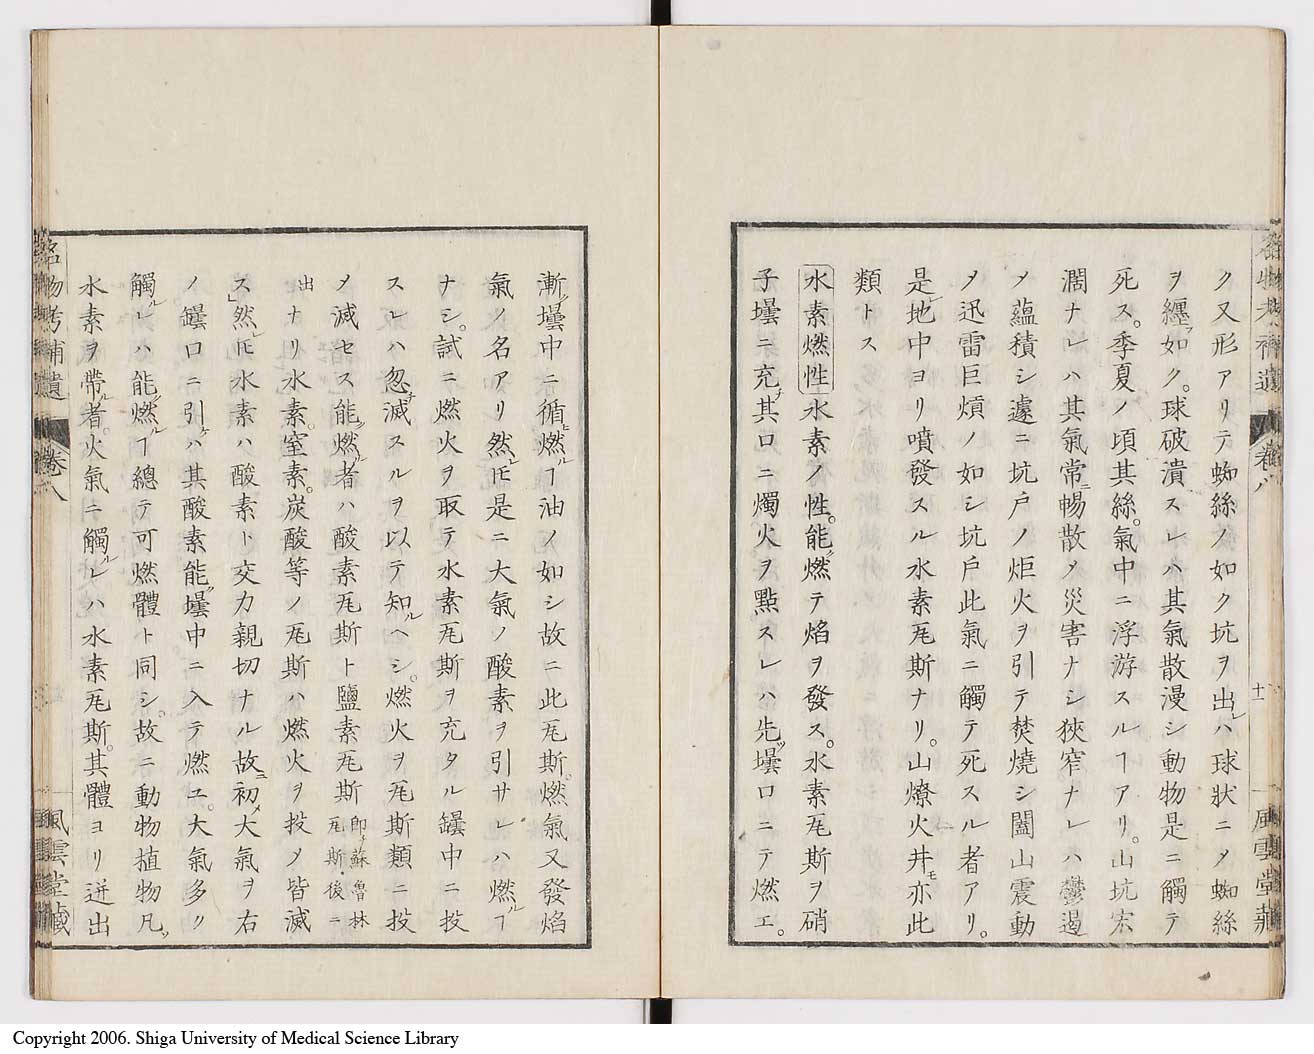 ク又形アリテ蜘絲ノ如ク坑ヲ出レハ球狀ニメ蜘絲
ヲ纏フ如ク。球破潰スレハ其氣散漫シ動物是ニ觸テ
死ス。季夏ノ頃其絲。氣中ニ浮游スルヿアリ。山坑宏
濶ナレハ其氣常ニ暢散メ災害ナシ狹窄ナレハ鬱遏
メ蘊積シ遽ニ坑戸ノ炬火ヲ引テ焚燒シ闔山震動
メ迅雷巨熕ノ如シ坑戸此氣ニ觸テ死スル者アリ。
是レ地中ヨリ噴發スル水素瓦斯ナリ。山燎火井モ亦此
類トス
水素燃性 水素ノ性。能ク燃テ焰ヲ發ス。水素瓦斯ヲ硝
子壜ニ充テ其口ニ燭火ヲ點スレハ先ツ壜口ニテ燃エ。
名物考補遺 卷八 十一 風雲堂藏
漸ク壜中ニ循ヒ燃ルヿ油ノ如シ故ニ此瓦斯。燃氣又發焰
氣ノ名アリ然レ𪜈是ニ大氣ノ酸素ヲ引サレハ燃ルヿ
ナシ。試ニ燃火ヲ取テ水素瓦斯ヲ充タル罎中ニ投
スレハ忽チ滅スルヲ以テ知ルヘシ。燃火ヲ瓦斯類ニ投
メ滅セス能ク燃ル者ハ酸素瓦斯ト鹽素瓦斯 即蘇魯林瓦斯・後ニ
出 ナリ水素。窒素。炭酸等ノ瓦斯ハ燃火ヲ投メ皆滅
ス」然レ𪜈水素ハ酸素ト交力親切ナル故ニ初メ大氣ヲ右
ノ罎口ニ引ケハ其酸素能ク壜中ニ入テ燃ユ。大氣多ク
觸ルレハ能ク燃ルヿ總テ可燃體ト同シ。故ニ動物植物凡ソ
水素ヲ帶ル者。火氣ニ觸ルレハ水素瓦斯。其體ヨリ迸出
名物考補遺 卷八 風雲堂藏
Copyright 2006. Shiga University of Medical Science Library